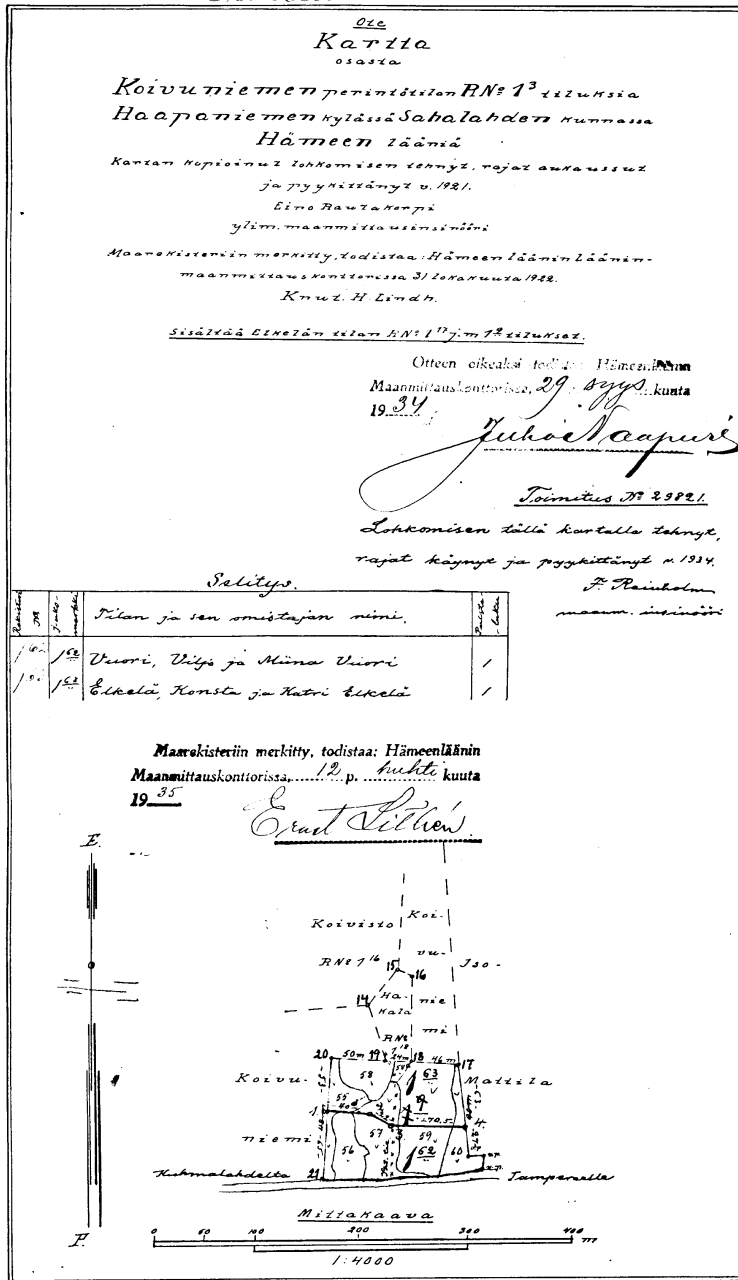 Ote
Kartta
osasta
Koivuniemen perintötilan RNº 1³ tiluksia
Haapaniemen kylässä Sahalahden kunnassa
Hämeen lääniä
Kartan kopioinut lohkomisen tehnyt, rajat aukaissut
ja pyykittänyt v. 1921.
Eino Rautakorpi
ylim. maanmittausinsinööri
Maarekisteriin merkitty, todistaa: Hämeen läänin läänin-
maanmittauskonttorissa 31 lokakuuta 1922.
Knut. H. Lindh.
Sisältää Elkelän tilan RNº 1¹⁷ j.m 1² tilukset.
Otteen oikeaksi todistaa Hämeenläänin
Maanmittauskonttorissa, 29 p. syys kuuta
19 34
Juho Naapuri
Toimitus Nº 29821.
Lohkomisen tällä kartalla tehnyt,
rajat käynyt ja pyykittänyt v. 1934.
F. Reinholm
maanm. insinööri
Selitys.
Rekisteri Nº Jako-merkki Tilan ja sen omistajan nimi. Palsta-luku
1⁶² 1⁶² Vuori, Viljo ja Miina Vuori 1
1⁶³ Elkelä, Konsta ja Katri Elkelä 1
Maarekisteriin merkitty, todistaa: Hämeenläänin
Maanmittauskonttorissa, 12 p. huhti kuuta
19 35
E.
Koivisto Koi-
RNº 1¹⁶ 15 vu- Iso-
16
14 Ha- nie
kala mi
RNº
1¹⁸
20 50m 19 24m 18 46m 17
58 63
Koivu- Mattila
55
1 4
170.5
niemi 57 59
56 62 60
21
Kuhmalahdelta Tampereelle
P.
Mittakaava
0 50 100 200 300 400 m
1:4000